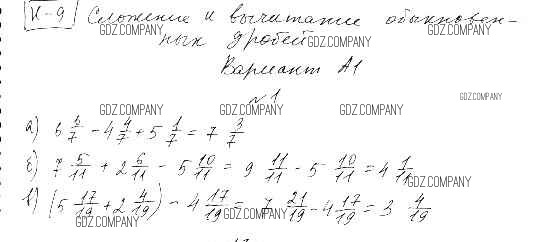 К-9 Сложение и вычитание обыкновен-
ных дробей
Вариант А1
№1
а) 6 6/7 - 4 4/7 + 5 1/7 = 7 3/7
б) 7 5/11 + 2 6/11 - 5 10/11 = 9 11/11 - 5 10/11 = 4 1/11
в) (5 17/19 + 2 4/19) - 4 17/19 = 7 21/19 - 4 17/19 = 3 4/19
GDZ.COMPANY
GDZ.COMPANY
GDZ.COMPANY
GDZ.COMPANY
GDZ.COMPANY
GDZ.COMPANY
GDZ.COMPANY
GDZ.COMPANY
GDZ.COMPANY
GDZ.COMPANY